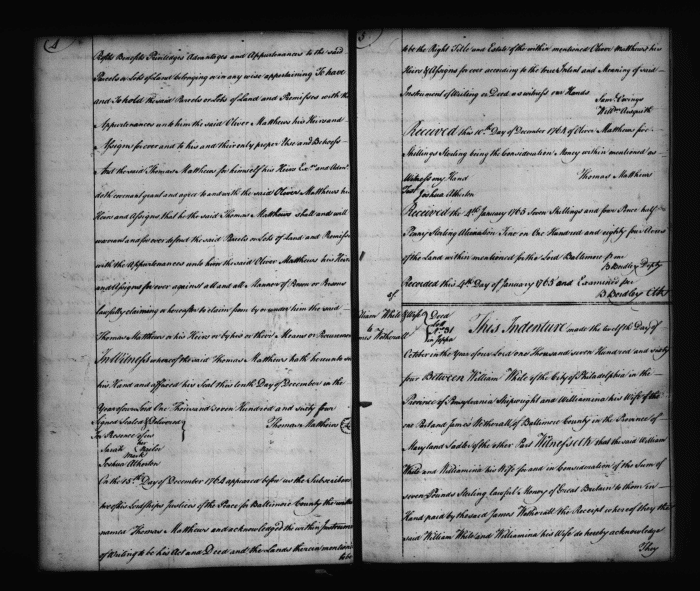 4
Profits Benefits Priviledges Advantages and Appurtenances to the said
Parcels or Lots of Land belonging or in any wise appertaining To have
and To hold the said Parcels or Lots of Land and Premisses with the
Appurtenances unto him the said Oliver Matthews his Heirs and
Assigns for ever and to his and their only proper Use and Behoof
And the said Thomas Matthews for himself his Heirs Exrs and Admrs
doth covenant grant and agree to and with the said Oliver Matthews his
Heirs and Assigns that he the said Thomas Matthews shall and will
warrant and for ever defend the said Parcels or Lots of Land and Premisses
with the Appurtenances unto him the said Oliver Matthews his Heirs
and Assigns for ever against all and all Manner of Person or Persons
lawfully claiming or hereafter to claim from by or under him the said
Thomas Matthews or his Heirs or by his or their Means or Procurement
In Witness whereof the said Thomas Matthews hath hereunto set
his Hand and affixed his Seal this tenth Day of December in the
Year of our Lord One Thousand Seven Hundred and sixty four
Signed Sealed & Delivered
In Presence of us
Thomas Matthews
her
Sarah
Mark
Joshua Atherton
On the 15th Day of December 1764 appeared before us the Subscribers
two of his Lordships Justices of the Peace for Baltimore County the within
named Thomas Matthews and acknowledged the within Instrument
of Writing to be his Act and Deed and the Lands therein mentioned
to be
5
to be the Right Title and Estate of the within mentioned Oliver Matthews his
Heirs & Assigns for ever according to the true Intent and Meaning of said
Instrument of Writing or Deed as witness our Hands
Saml Owings
Willm
Received this 10th Day of December 1764 of Oliver Matthews five
Shillings Sterling being the Consideration Money within mentioned as
Witness my Hand
Thomas Matthews
Test Joshua Atherton
Received the 4th January 1765 Seven Shillings and four Pence half
Penny Sterling Alienation Fine on One Hundred and eighty four Acres
of the Land within mentioned for the Lord Baltimore from
B Bordley Depty
Recorded this 4th Day of January 1765 and Examined per
B Bordley Clk
William White & Wife
to
James Wetherall
Deed
Lott
No 31
in Joppa
This Indenture made the twelfth Day of
October in the Year of our Lord one Thousand seven Hundred and sixty
four Between William White of the City of Philadelphia in the
Province of Pensylvania Shipwright and Williamina his Wife of the
one Part and James Wetherall of Baltimore County in the Province of
Maryland Sadler of the other Part Witnesseth that the said William
White and Williamina his Wife for and in Consideration of the Sum of
seven Pounds Sterling lawful Money of Great Britain to them in
Hand paid by the said James Wetherall the Receipt whereof they the
said William White and Williamina his Wife do hereby acknowledge
They